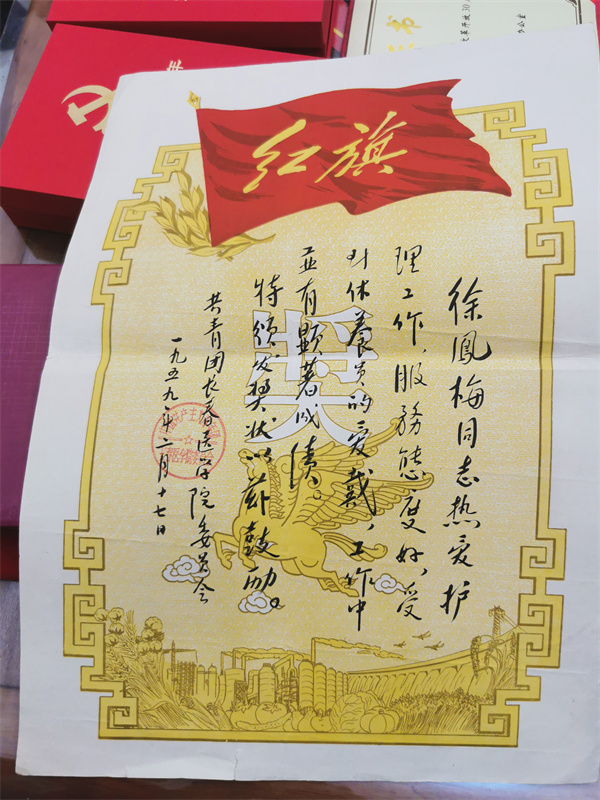 红旗
奖
徐鳳梅同志热爱护
理工作、服務態度好、受
到休養員的爱戴，工作中
並有顕著成績。
特頒发奬状以兹鼓励。
共青团长春医学院委員会
一九五九年二月十七日